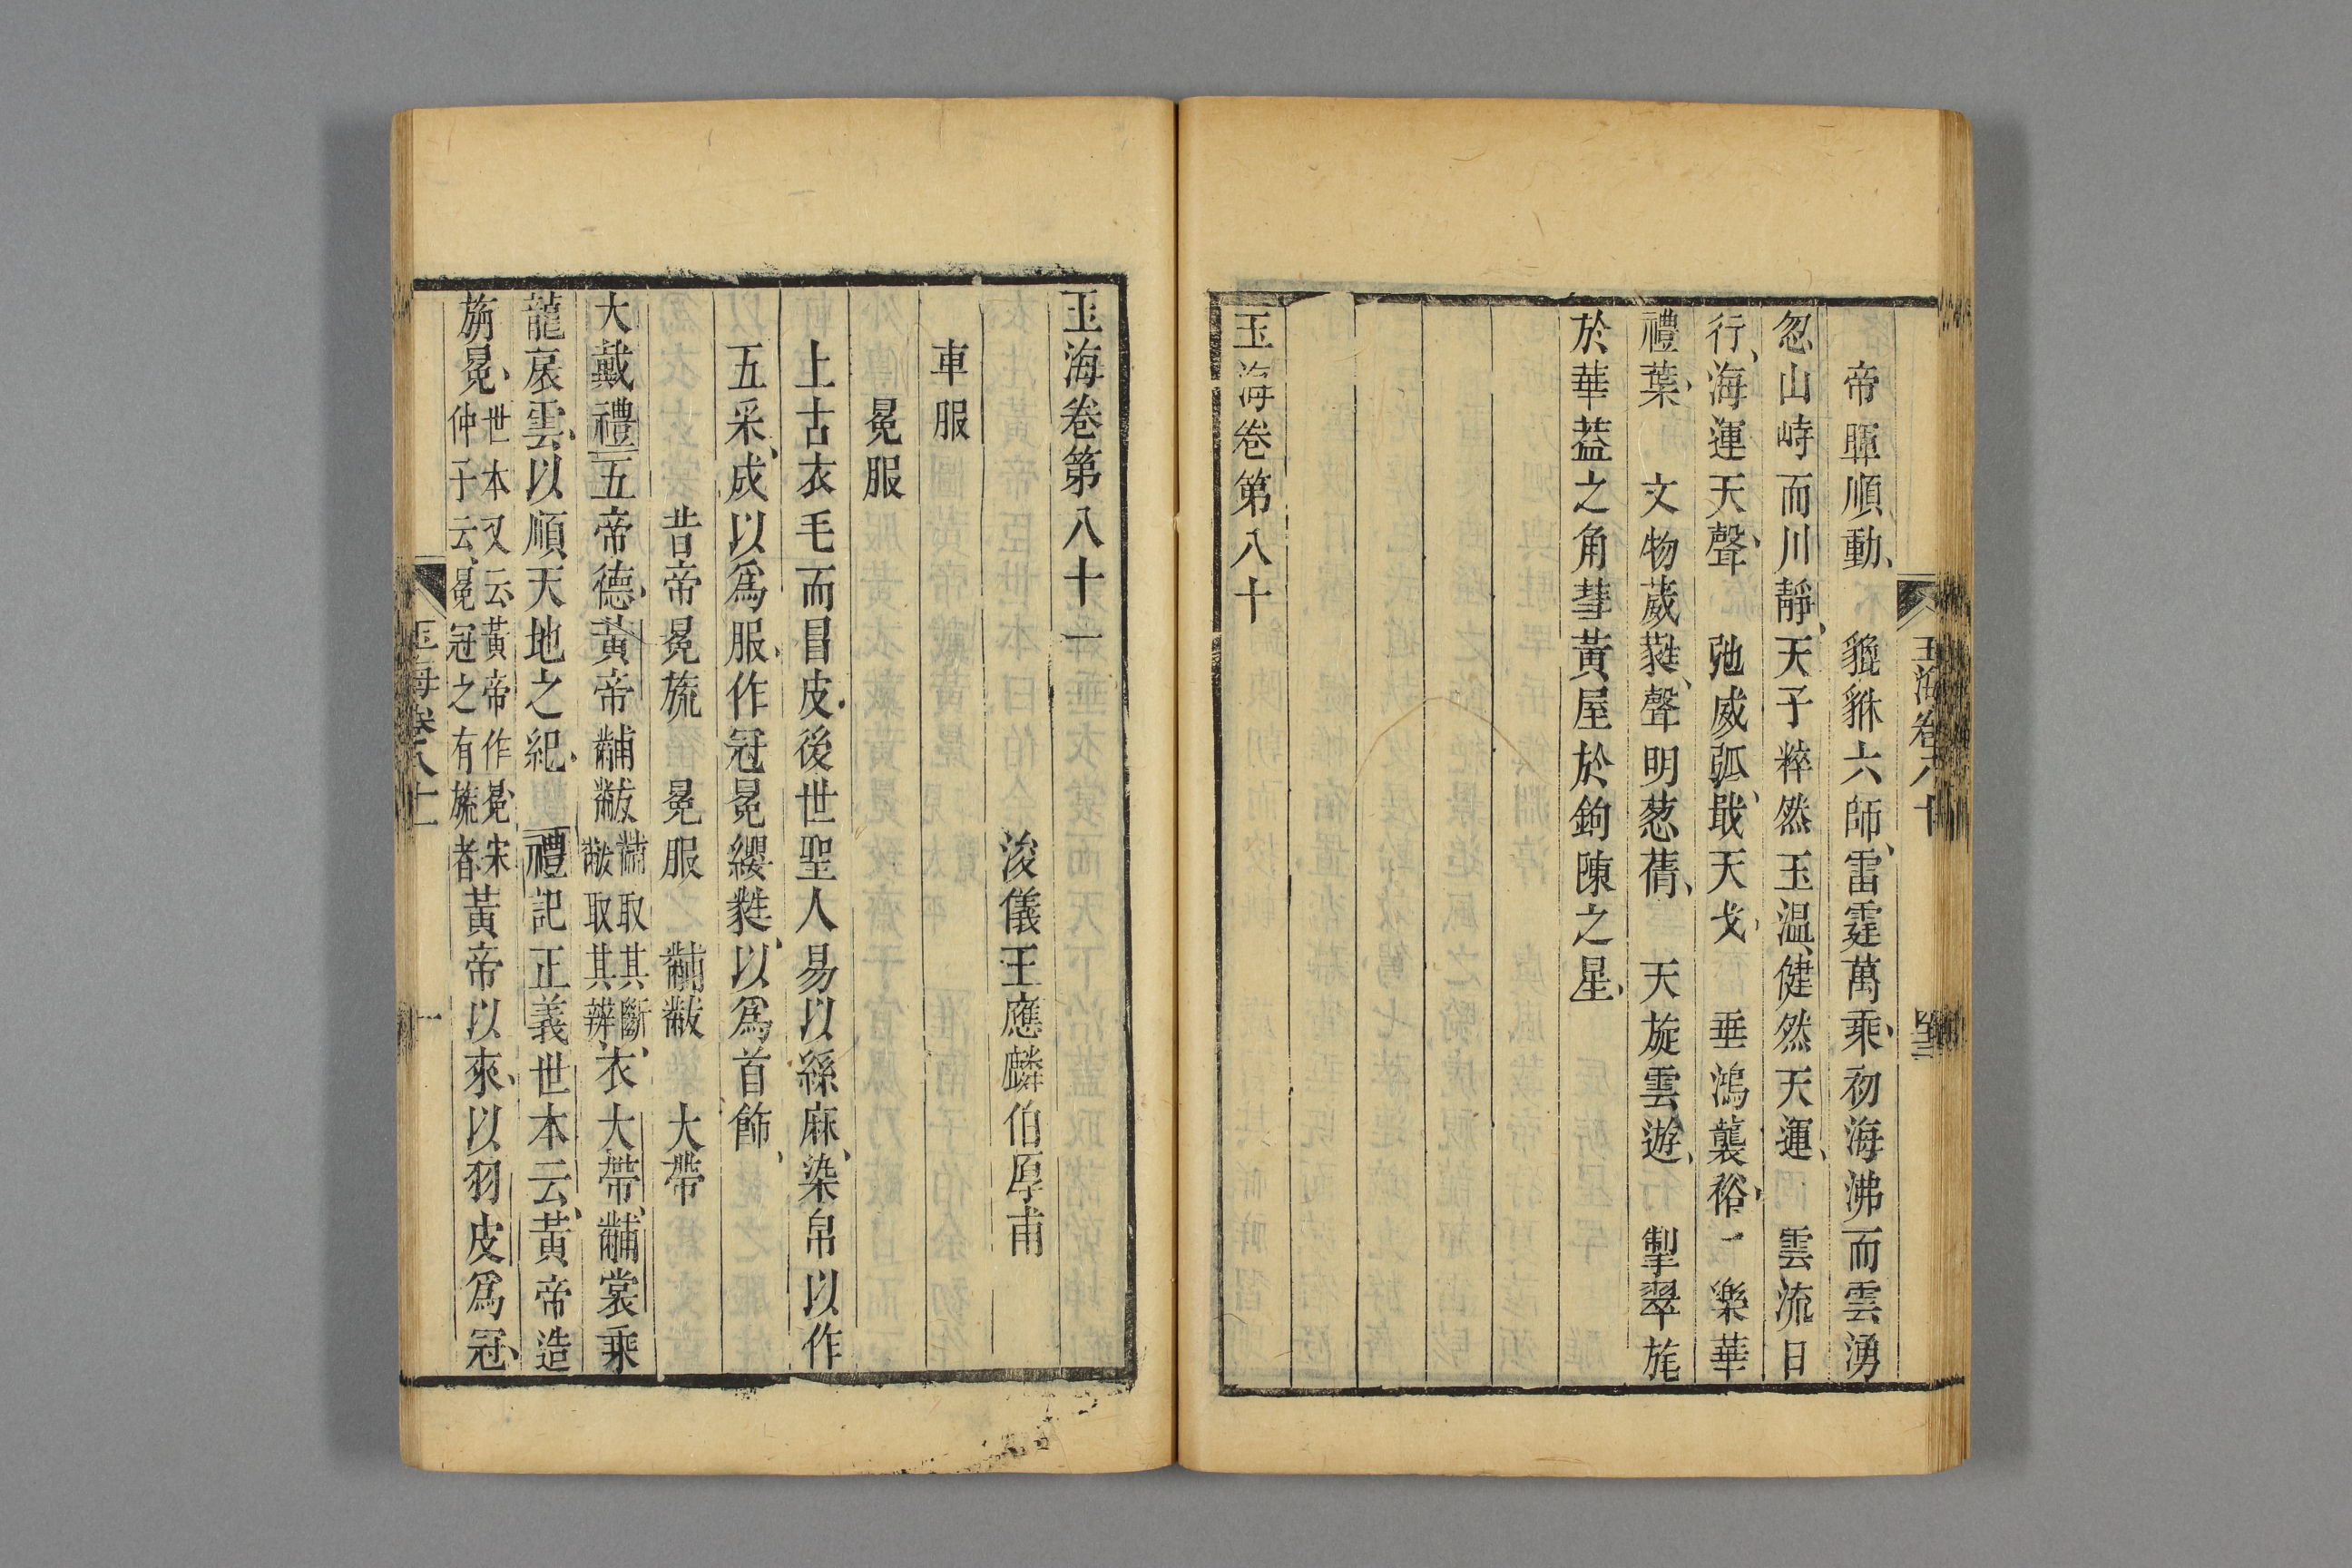 玉海卷八十
帝暉順動　貔貅六師雷霆萬乘初海沸而雲湧
忽山峙而川靜天子粹然玉温健然天運　雲流日
行海運天聲　弛威弧戢天戈　垂鴻襲裕一樂華
禮葉　文物葳蕤聲明葱蒨　天旋雲遊　掣翠旄
於華蓋之角彗黃屋於鉤陳之星
玉海卷第八十
玉海卷第八十一
浚儀王應麟伯厚甫
車服
冕服
上古衣毛而冒皮後世聖人易以絲麻染帛以作
五采成以爲服作冠冕纓蕤以爲首飾
昔帝冕旒　冕服　黼黻　大帶
大戴禮五帝德黃帝黼黻黼取其斷黻取其辨衣大帶黼裳乘
龍扆雲以順天地之紀　禮記正義世本云黃帝造
旃冕世本又云黃帝作冕宋仲子云冕冠之有旒者黃帝以來以羽皮爲冠
玉海卷八十一
一